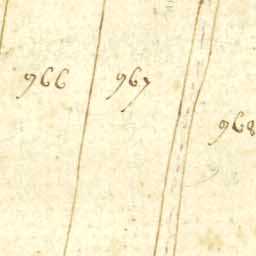 966
967
968